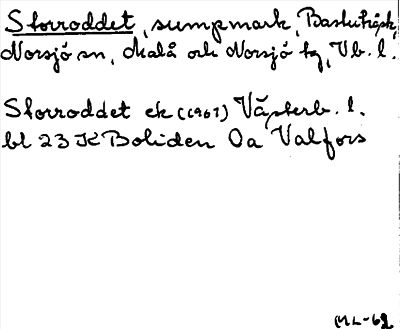 Storroddet, sumpmark, Bastuträsk,
Norsjö sn, Malå och Norsjö tg, Vb. l.
Storroddet ek (1961) Västerb. l.
bl 23 K Boliden 0a Valfors
ML-62